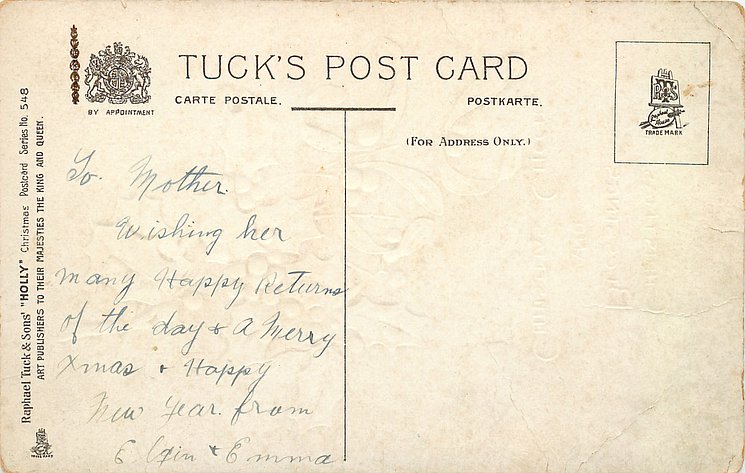 TUCK'S POST CARD
BY APPOINTMENT
CARTE POSTALE.
POSTKARTE.
(FOR ADDRESS ONLY.)
TRADE MARK
Raphael Tuck & Sons' "HOLLY" Christmas Postcard Series No. 548
ART PUBLISHERS TO THEIR MAJESTIES THE KING AND QUEEN.
To. Mother.
Wishing her
many Happy Returns
of the day & A Merry
Xmas & Happy
New Year. from
& Emma